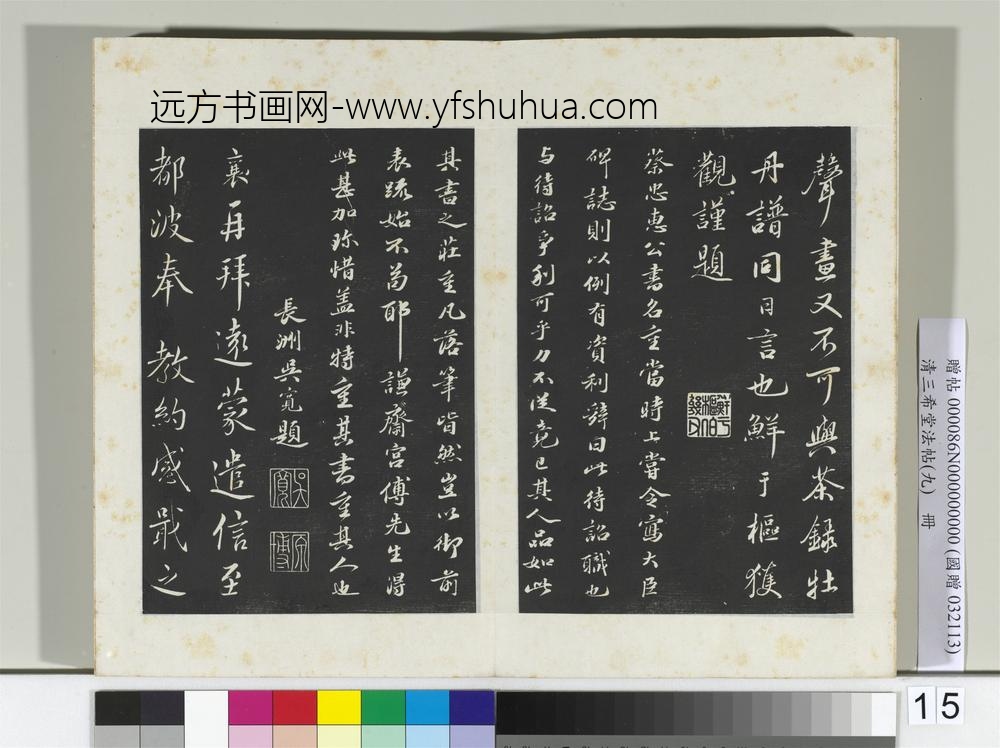 远方书画网-www.yfshuhua.com
聲畫又不可與茶錄牡
丹譜同日言也鮮于樞獲
觀謹題
鮮于樞伯幾父
蔡忠惠公書名重當時上嘗令寫大臣
碑誌則以例有資利辭曰此待詔職也
与待詔爭利可乎力不從竟已其人品如此
其書之莊重凡落筆皆然豈以御前
表疏始不苟耶謙齋宮傅先生得
此甚加珍惜盖非特重其書重其人也
長洲吳寬題
吳寬
原博
襄再拜遠蒙遣信至
都波奉教約感戢之
贈帖 000086N000000000 (國贈 032113)
清三希堂法帖(九) 冊
15